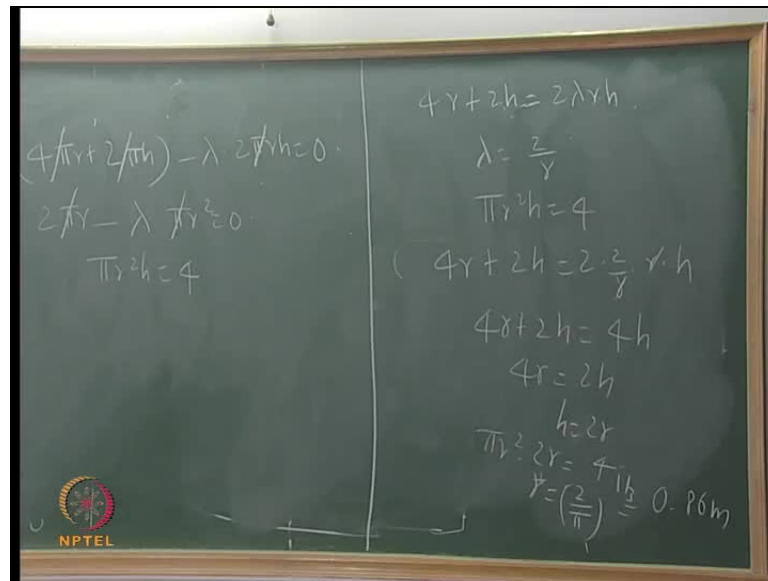 (4πr+2πh) - λ 2πrh=0.
2πr - λ πr²=0
πr²h=4
4r+2h=2λrh.
λ= 2/r
πr²h=4
4r+2h=2·2/r·r·h
4r+2h=4h
4r=2h
h=2r
πr²·2r=4
r=(2/π)^1/3=0.86m
NPTEL